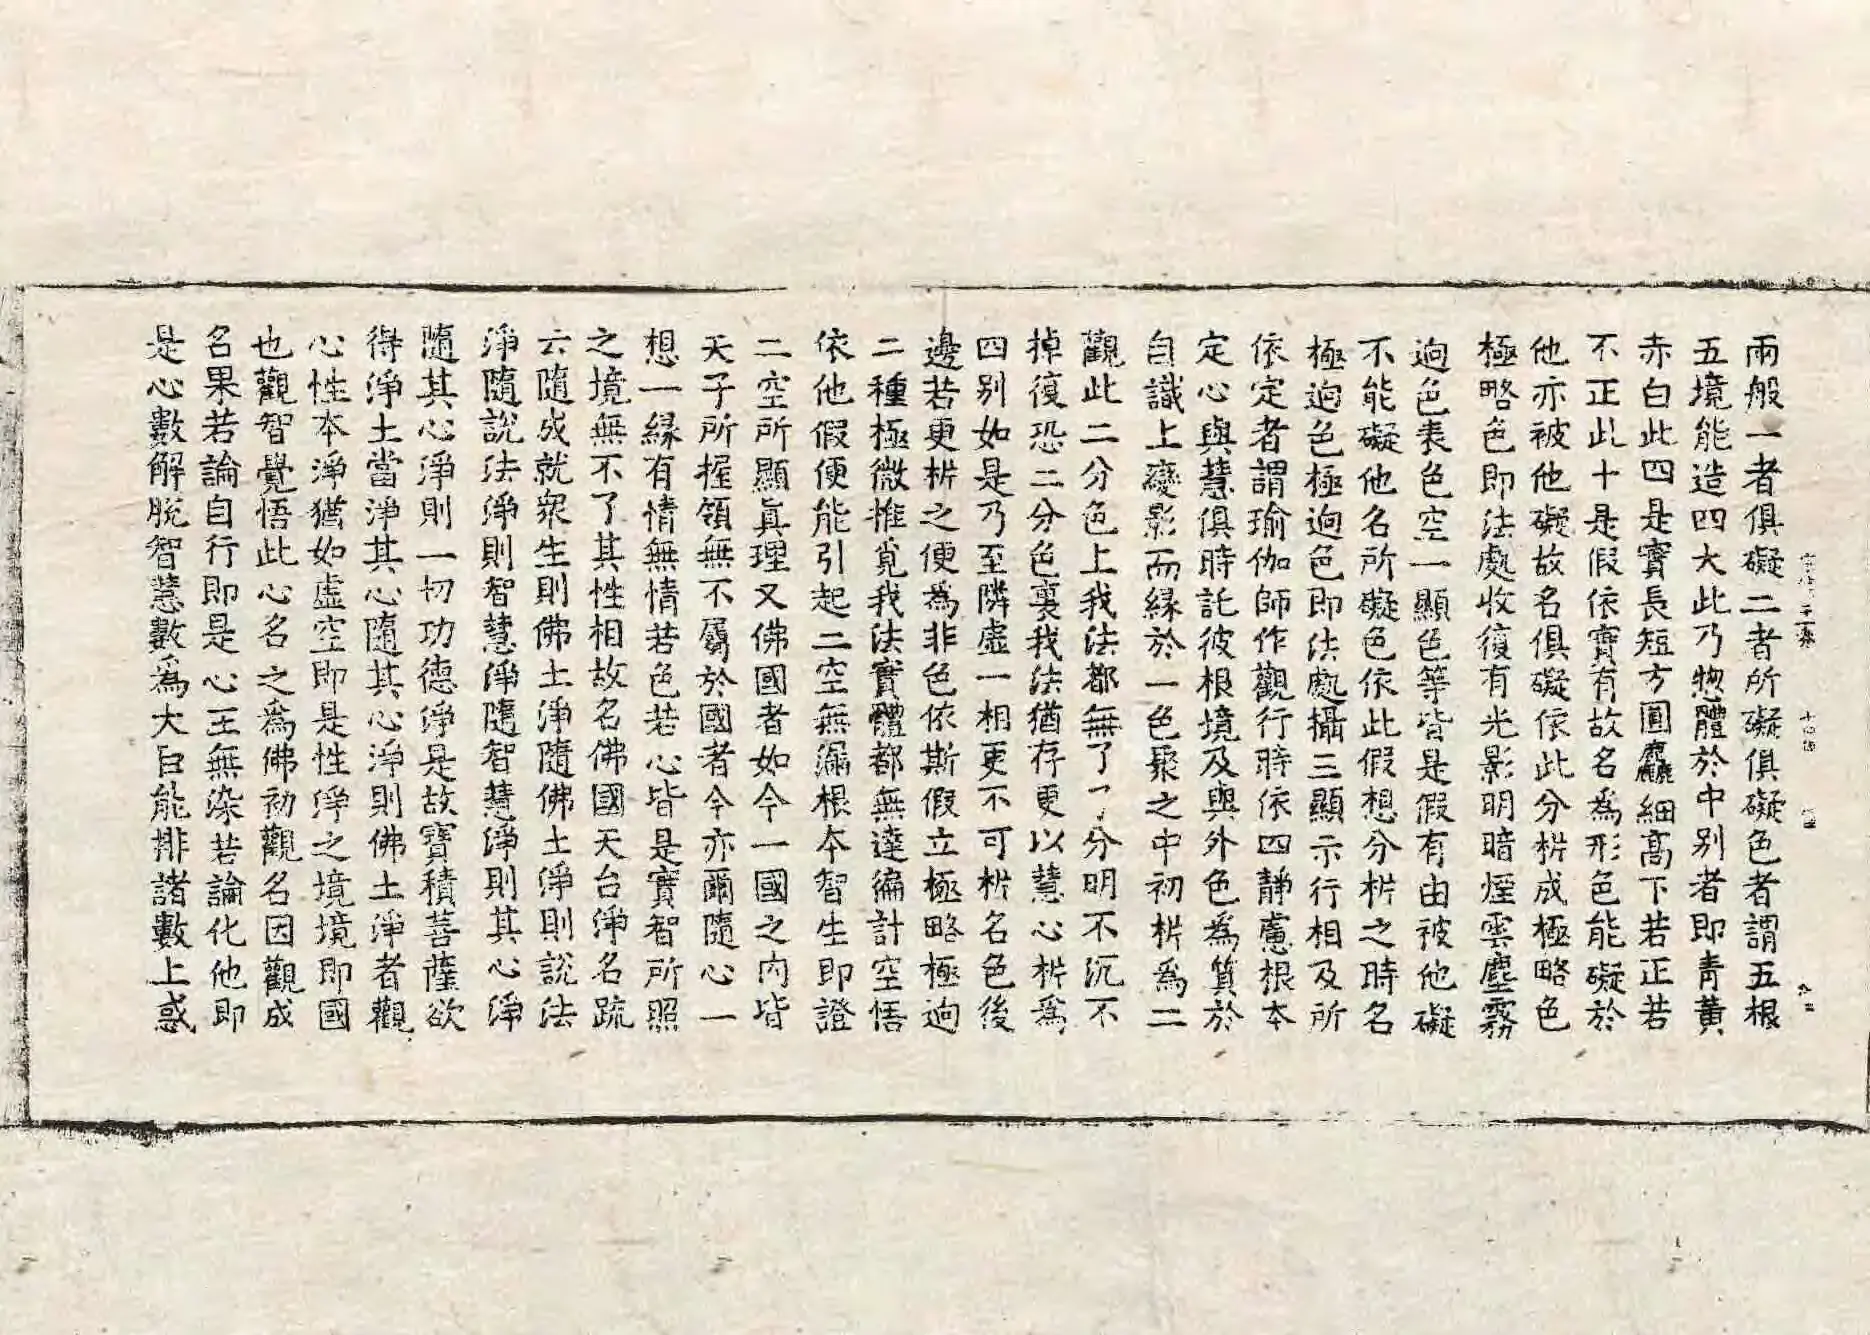 兩般一者俱礙二者所礙俱礙色者謂五根
五境能造四大此乃惣體於中别者即青黄
赤白此四是實長短方圓麤細髙下若正若
不正此十是假依實有故名為形色能礙於
他亦被他礙故名俱礙依此分㭊成極略色
極略色即法處收復有光影明暗煙雲塵霧
逈色表色空一顯色等皆是假有由被他礙
不能礙他名所礙色依此假想分㭊之時名
極逈色極逈色即法處攝三顯示行相及所
依定者謂瑜伽師作觀行時依四靜慮根本
定心與慧俱時託彼根境及與外色為質於
自識上變影而緣於一色聚之中初㭊為二
觀此二分色上我法都無了了分明不沉不
掉復恐二分色裏我法猶存更以慧心㭊為
四别如是乃至隣虛一相更不可㭊名色後
邊若更㭊之便為非色依斯假立極略極逈
二種極微推覓我法實體都無達徧計空悟
依他假便能引起二空無漏根本智生即證
二空所顯眞理又佛國者如今一國之内皆
天子所握領無不屬於國者今亦爾隨心一
想一緣有情無情若色若心皆是實智所照
之境無不了其性相故名佛國天台淨名疏
云隨成就衆生則佛土淨隨佛土淨則說法
淨隨說法淨則智慧淨隨智慧淨則其心淨
隨其心淨則一切功德淨是故寶積菩薩欲
得淨土當淨其心隨其心淨則佛土淨者觀
心性本淨猶如虛空即是性淨之境境即國
也觀智覺悟此心名之為佛初觀名因觀成
名果若論自行即是心王無染若論化他即
是心數解脫智慧數為大臣能排諸數上惑